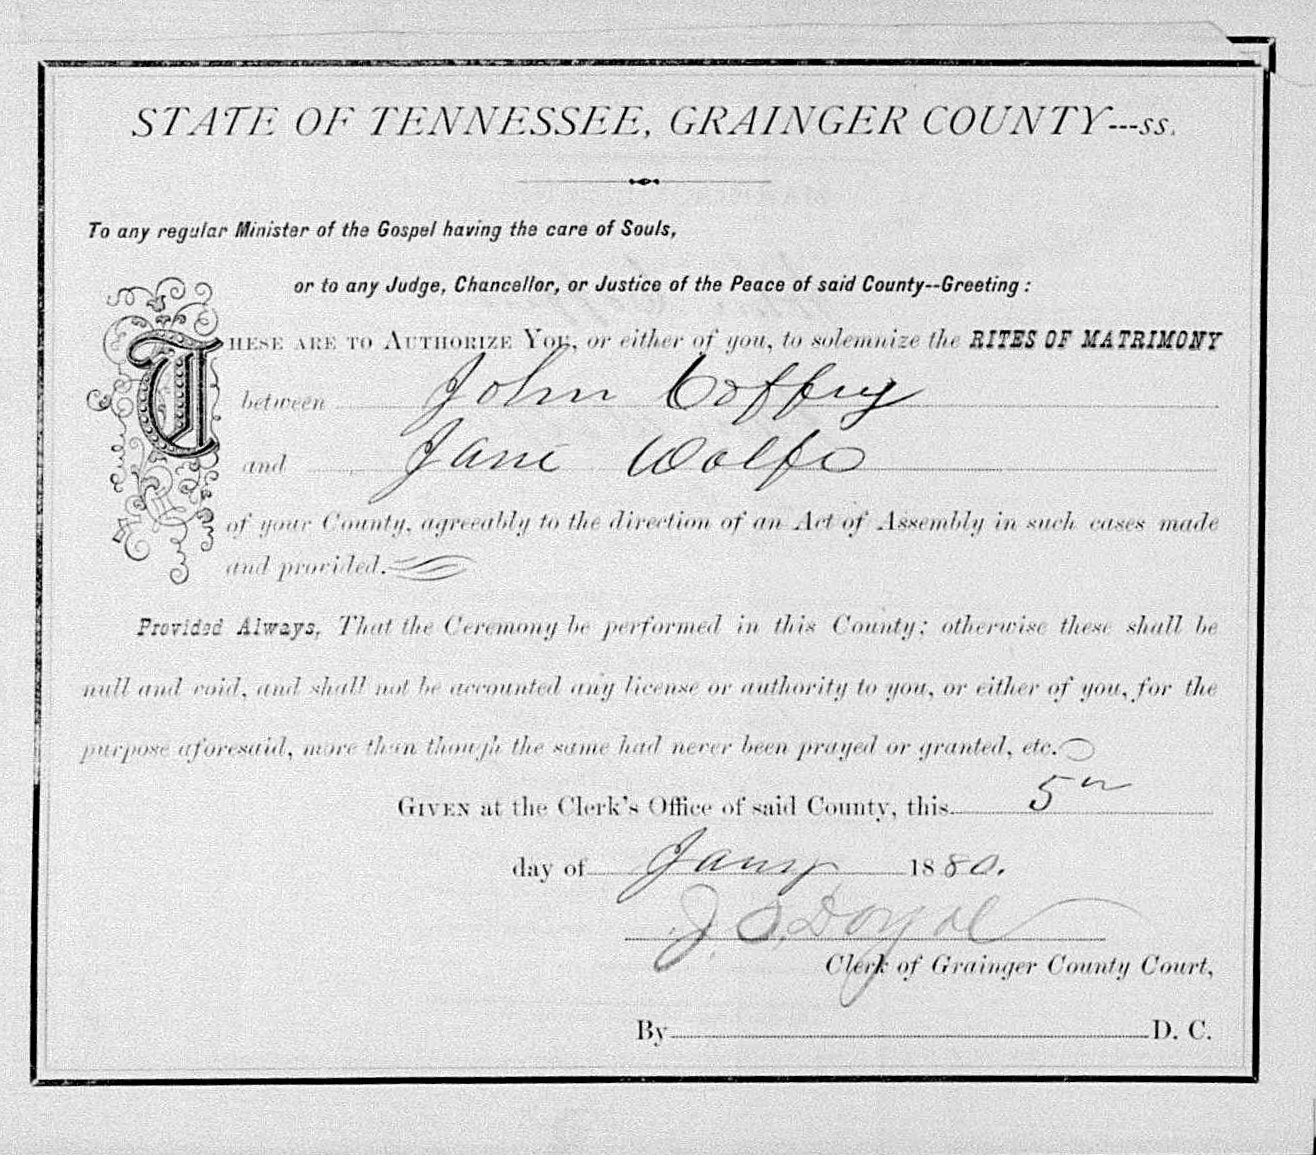 STATE OF TENNESSEE, GRAINGER COUNTY---ss.
To any regular Minister of the Gospel having the care of Souls,
or to any Judge, Chancellor, or Justice of the Peace of said County--Greeting:
THESE ARE TO AUTHORIZE YOU, or either of you, to solemnize the RITES OF MATRIMONY
between John Coffey
and Jane Wolfe
of your County, agreeably to the direction of an Act of Assembly in such cases made
and provided.
Provided Always, That the Ceremony be performed in this County; otherwise these shall be
null and void, and shall not be accounted any license or authority to you, or either of you, for the
purpose aforesaid, more than though the same had never been prayed or granted, etc.
GIVEN at the Clerk's Office of said County, this 5th
day of Jany 1880.
J. C. Doyal
Clerk of Grainger County Court,
By D. C.